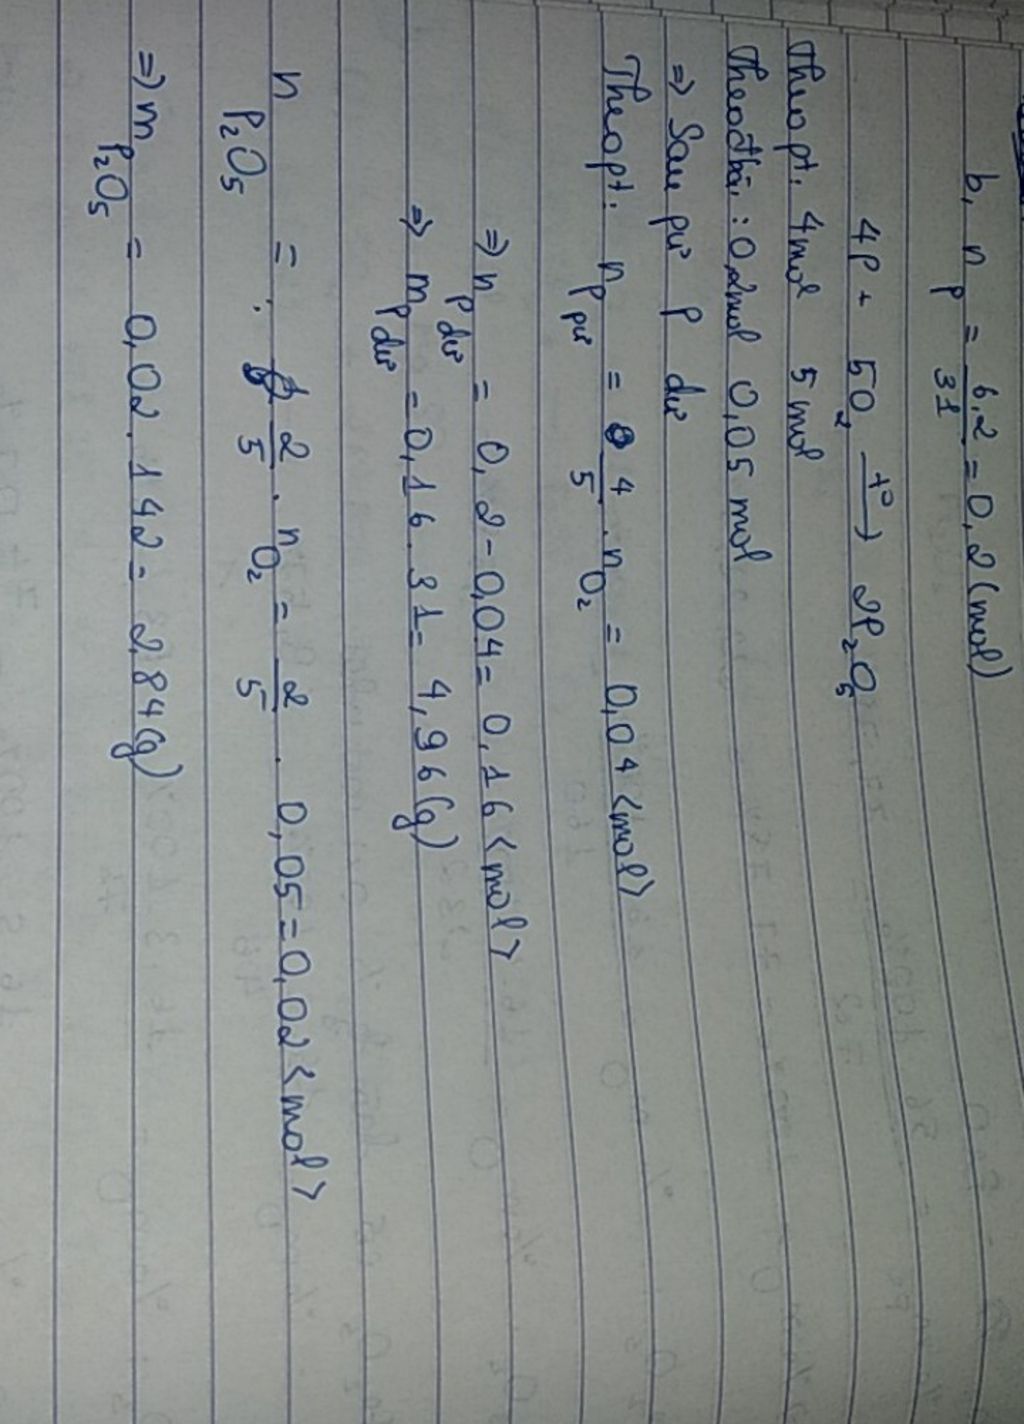 b, n P = 6,2/31 = 0,2 (mol)
4P + 5O₂ t°→ 2P₂O₅
Theo pt: 4mol 5mol
Theo đbài: 0,2mol 0,05 mol
=> Sau pư P dư
Theo pt: n P pư = 4/5 . n O₂ = 0,04 <mol>
=> n P dư = 0,2 - 0,04 = 0,16 <mol>
=> m P dư = 0,16 . 31 = 4,96 (g)
n P₂O₅ = 2/5 . n O₂ = 2/5 . 0,05 = 0,02 <mol>
=> m P₂O₅ = 0,02 . 142 = 2,84 (g)